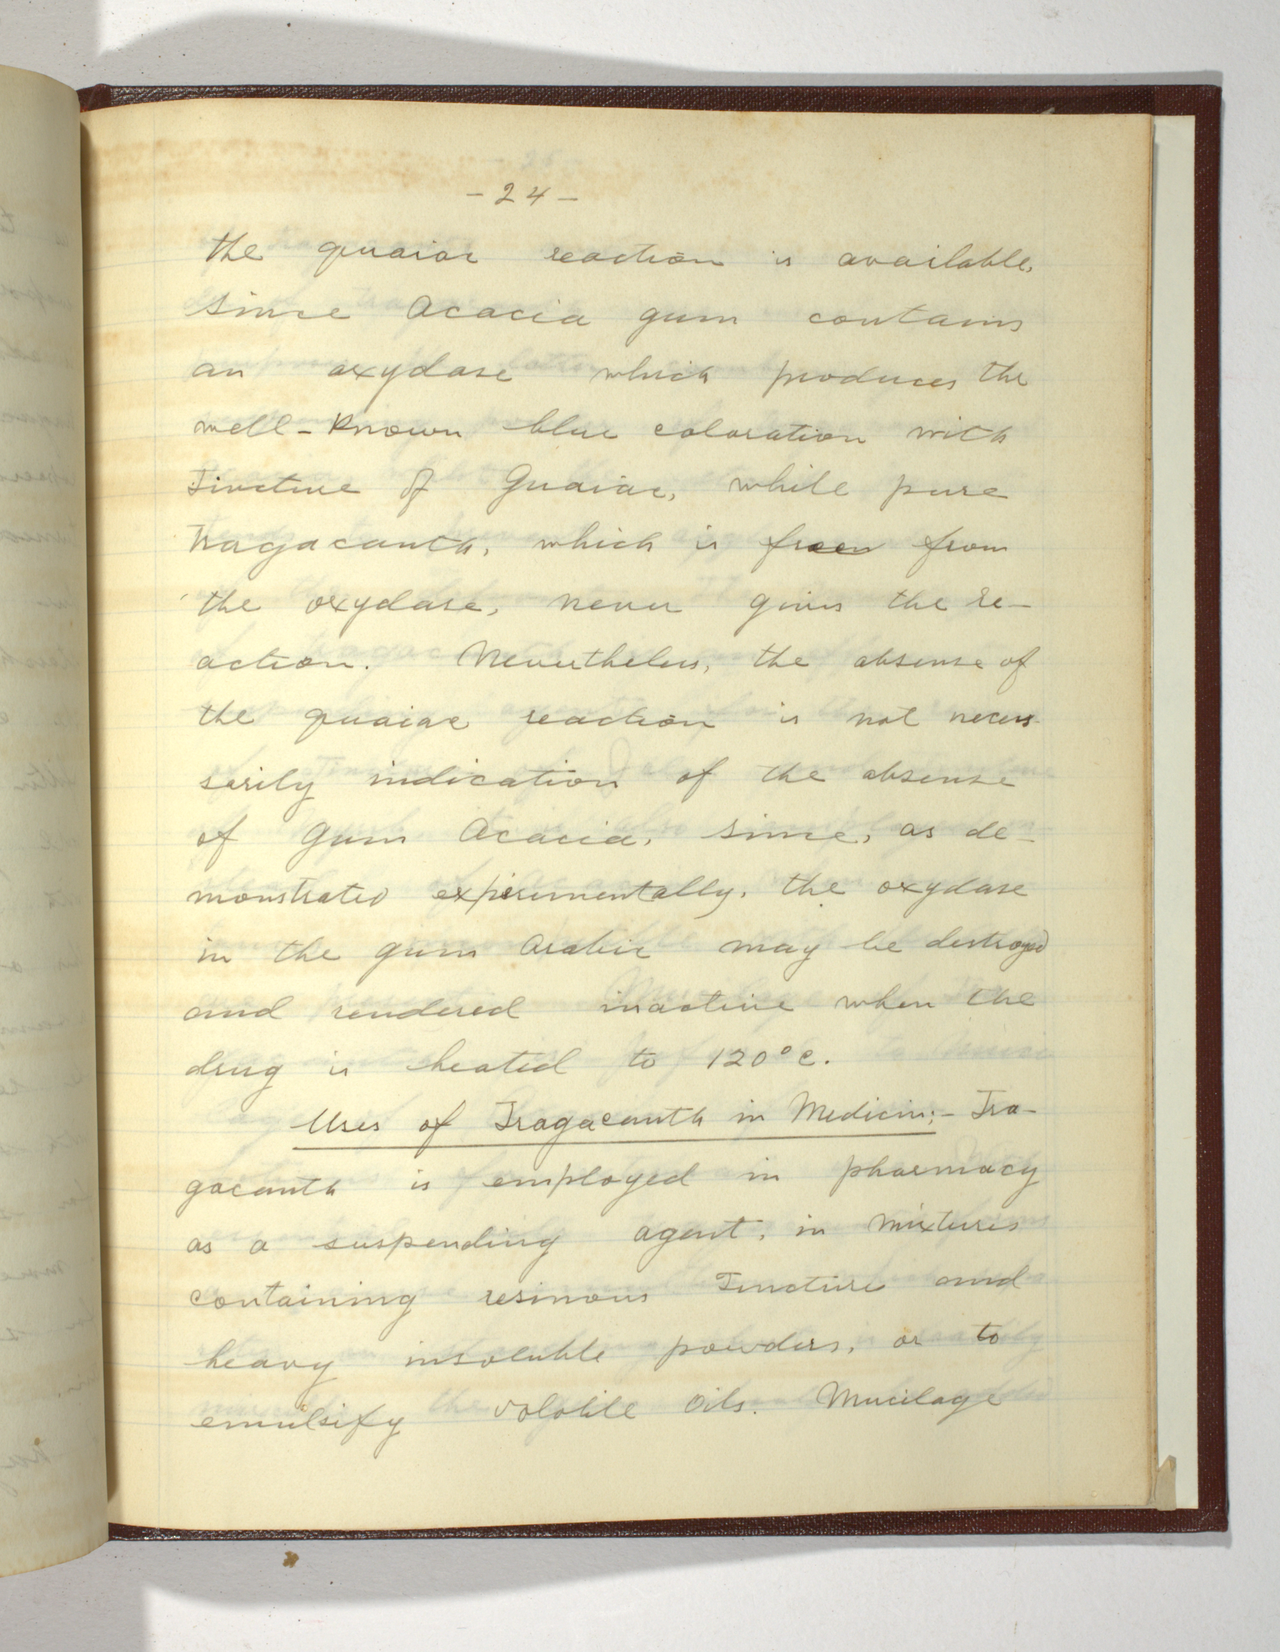 -24-
the guaiac reaction is available,
since Acacia gum contains
an oxydase which produces the
well-known blue coloration with
Tincture of Guaiac, while pure
Tragacanth, which is free from
the oxydase, never gives the re-
action. Nevertheless, the absense of
the guaiac reaction is not neces
sarily indication of the absense
of Gum Acacia, since, as de-
monstrated experimentally, the oxydase
in the gum arabic may be destroyed
and rendered inactive when the
drug is heated to 120°C.
Uses of Tragacanth in Medicin:- Tra-
gacanth is employed in pharmacy
as a suspending agent, in mixtures
containing resinous Tincture and
heavy insoluble powders, or to
emulsify volatile oils. Mucilage